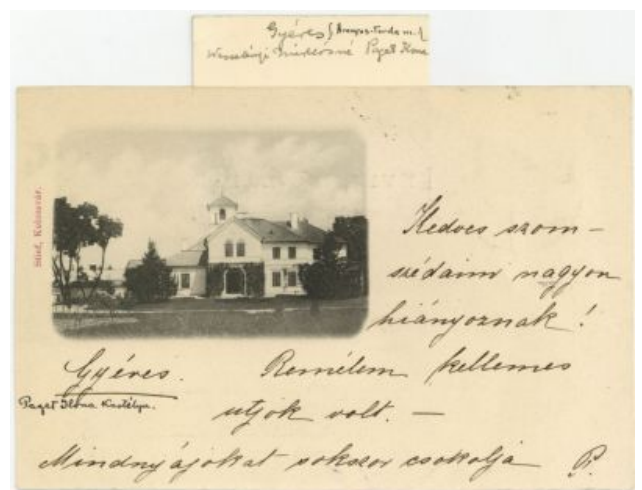 Gyéres (Aranyos-Torda m.)
Wesselényi Miklósné Paget Ilona
Stief, Kolozsvár.
Kedves szom-
szédaim nagyon
hiányoznak!
Gyéres.
Paget Ilona Kastélya.
Remélem kellemes
utjok volt. —
Mindnyájokat sokszor csokolja P.